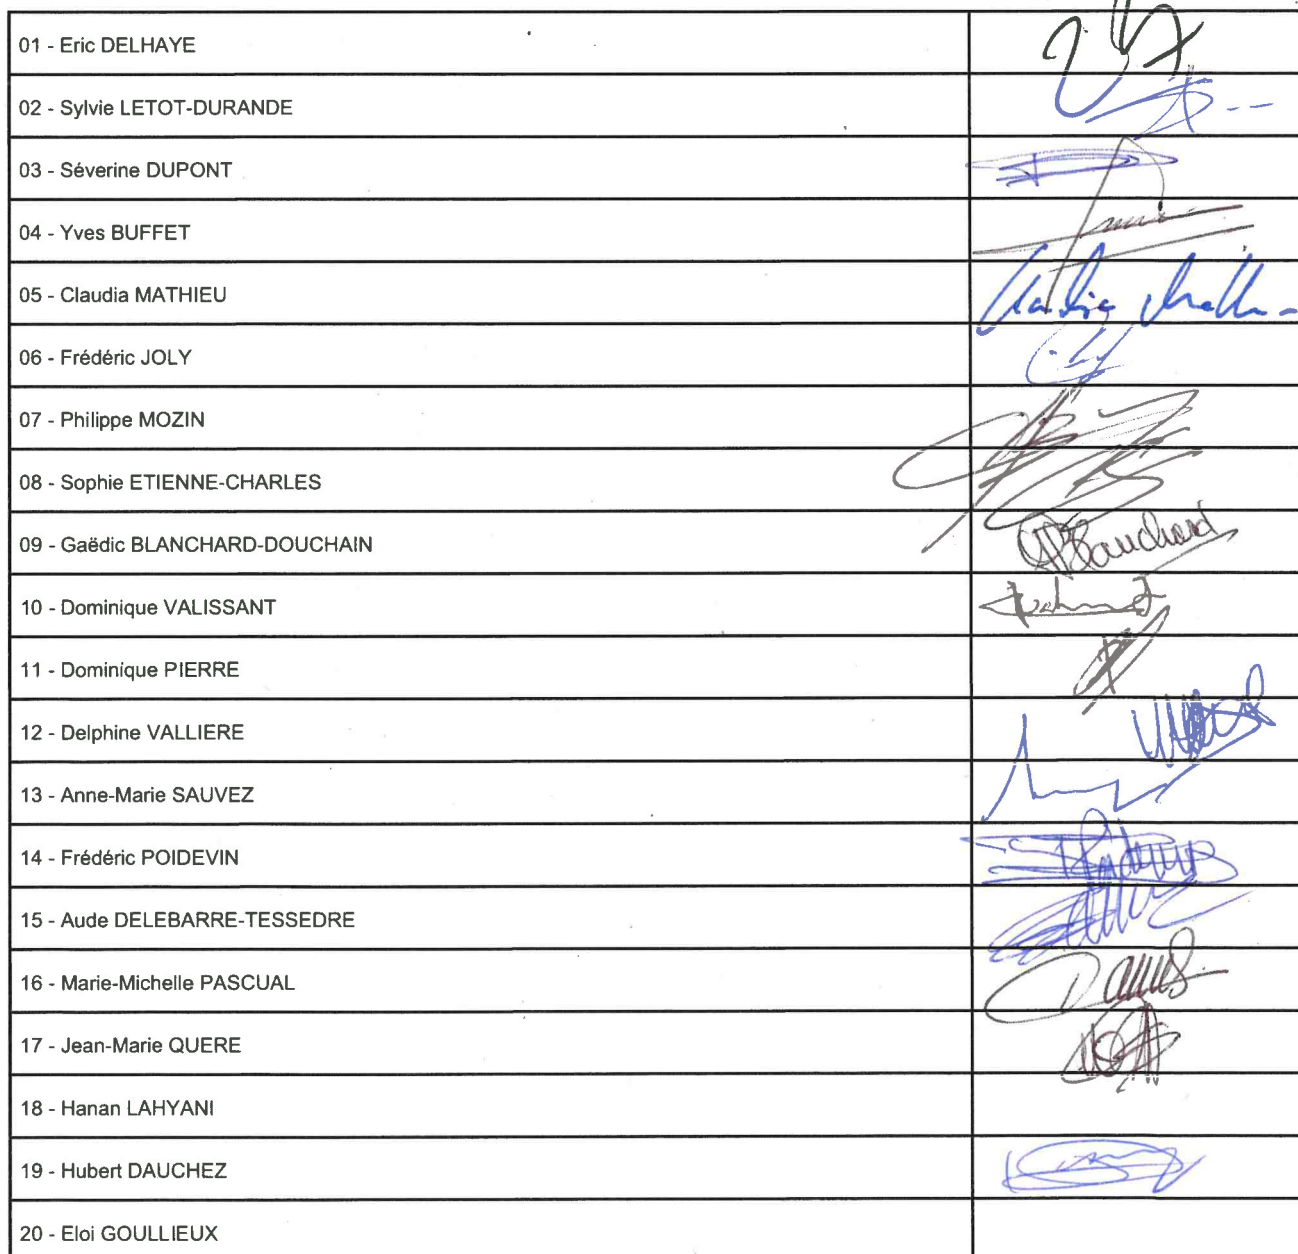 01 - Eric DELHAYE
02 - Sylvie LETOT-DURANDE
03 - Séverine DUPONT
04 - Yves BUFFET
05 - Claudia MATHIEU
Claudia
06 - Frédéric JOLY
07 - Philippe MOZIN
08 - Sophie ETIENNE-CHARLES
09 - Gaëdic BLANCHARD-DOUCHAIN
10 - Dominique VALISSANT
11 - Dominique PIERRE
12 - Delphine VALLIERE
13 - Anne-Marie SAUVEZ
14 - Frédéric POIDEVIN
15 - Aude DELEBARRE-TESSEDRE
16 - Marie-Michelle PASCUAL
17 - Jean-Marie QUERE
18 - Hanan LAHYANI
19 - Hubert DAUCHEZ
20 - Eloi GOULLIEUX